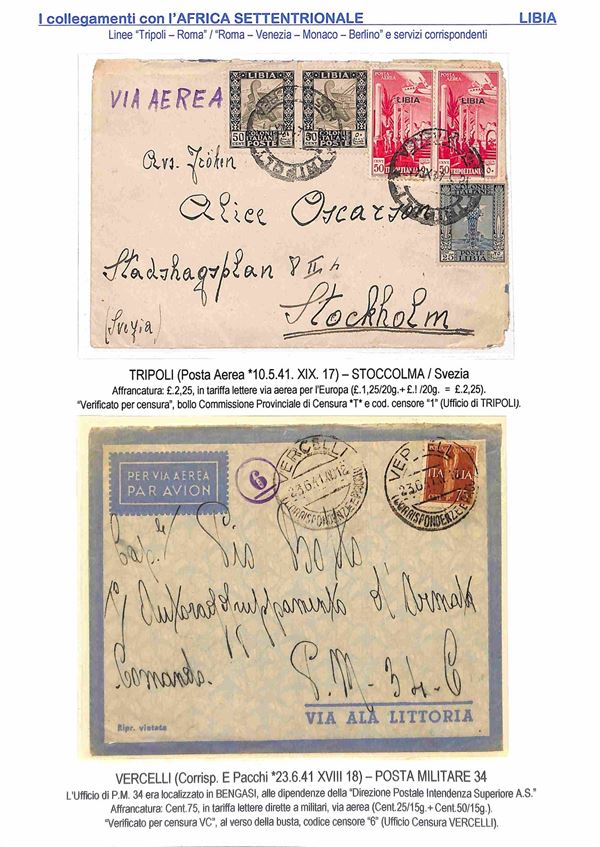 I collegamenti con l'AFRICA SETTENTRIONALE LIBIA
Linee "Tripoli – Roma" / "Roma – Venezia – Monaco – Berlino" e servizi corrispondenti
VIA AEREA
LIBIA
50 COLONIE ITALIANE POSTE
LIBIA
50 COLONIE ITALIANE POSTE
POSTA AEREA
LIBIA
50 TRIPOLITANIA
POSTA AEREA
LIBIA
50 TRIPOLITANIA
COLONIE ITALIANE
25 POSTE LIBIA
TRIPOLI
Alice Oscarson
Stadshagsplan 8 II h
Stockholm
(Svezia)
TRIPOLI (Posta Aerea *10.5.41. XIX. 17) – STOCCOLMA / Svezia
Affrancatura: £.2,25, in tariffa lettere via aerea per l'Europa (£.1,25/20g.+ £.! /20g. = £.2,25).
"Verificato per censura", bollo Commissione Provinciale di Censura *T* e cod. censore "1" (Ufficio di TRIPOLI).
PER VIA AEREA
PAR AVION
6
VERCELLI
23.6.41.XIX 18
(CORRISPONDENZE E PACCHI)
VERCELLI
23.6.41.XIX 18
(CORRISPONDENZE E PACCHI)
Comando
P.M - 34 - C
VIA ALA LITTORIA
Ripr. vietata
VERCELLI (Corrisp. E Pacchi *23.6.41 XVIII 18) – POSTA MILITARE 34
L'Ufficio di P.M. 34 era localizzato in BENGASI, alle dipendenze della "Direzione Postale Intendenza Superiore A.S."
Affrancatura: Cent.75, in tariffa lettere dirette a militari, via aerea (Cent.25/15g.+ Cent.50/15g.).
"Verificato per censura VC", al verso della busta, codice censore "6" (Ufficio Censura VERCELLI).